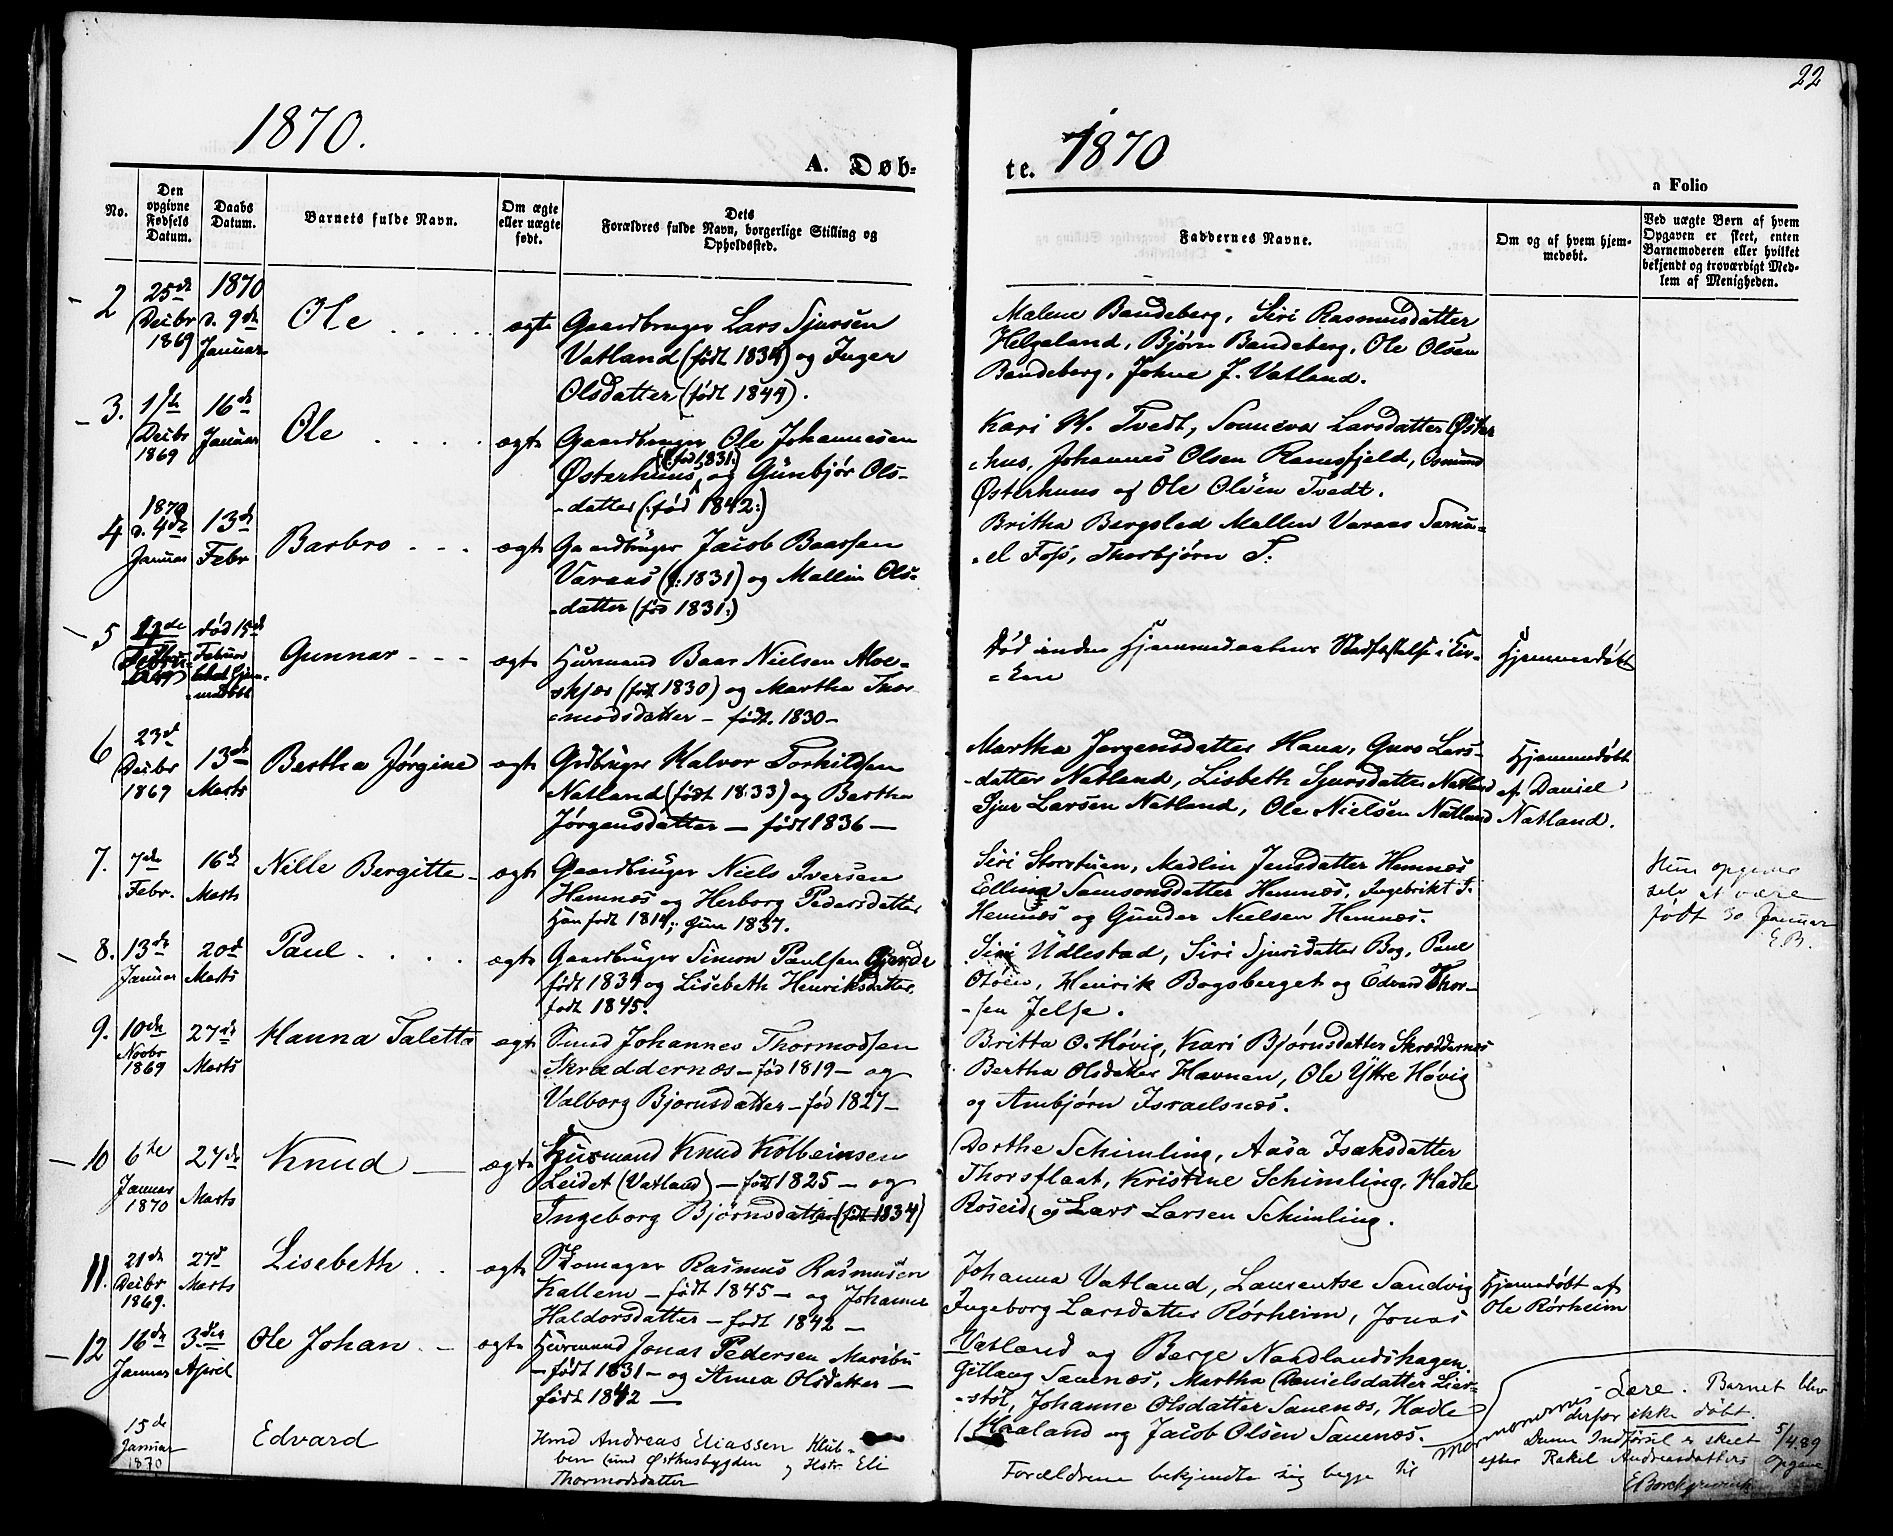 22
1870.
1870
A. Døb-
te.
a Folio
No.
Den opgivne Fødsels Datum.
Daabs Datum.
Barnets fulde Navn.
Om ægte eller uægte født.
Dets Forældres fulde Navn, borgerlige Stilling og Opholdssted.
Faddernes Navne.
Om og af hvem hjemmedøbt.
Ved uægte Børn af hvem Opgaven er skeet, enten Barnemoderen eller hvilket bekjendt og troværdigt Medlem af Menigheden.
2
25de Decbr 1869
1870 d. 9de Januar
Ole
ægte
Gaardbruger Lars Sjursen
Vatland (født 1834) og Inger
Olsdatter (født 1844).
Malene Bandeberg, Siri Rasmusdatter
Helgaland, Bjørn Bandeberg, Ole Olsen
Bandeberg, Johne J. Vatland.
3.
1ste Decbr 1869
16de Januar
Ole
ægte
Gaardbruger Ole Johannesen
Østerhuus (: fød 1831:) og Gunbjør Ols-
-datter (: fød 1842:)
Kari H. Tvedt, Sonneva Larsdatter Øster
-hus, Johannes Olsen Ramsfjeld, Osmund
Østerhuus af Ole Olsen Tvedt.
4
1870 d. 4de Januar
13de Febr
Barbro
ægte
Gaardbruger Jacob Baarsen
Varaas (f: 1831) og Mallin Ols-
-datter (fød 1831:)
Britha Bergstad Mallin Varaas Samu-
-el Foss, Thorbjørn T:
5
død 15de Februar
Gunnar
ægte
Husmand Baar Nielsen Alve-
skjær (født 1830) og Martha Thor
-modsdatter - født. 1830-
Død inden Hjemmedaabens Stadfæstelse i Kir-
-ken
Hjemmedøbt
6
23de Decbr 1869
13de Marts
Bertha Jørgine
ægte
Grdbruger Halvor Torkildsen
Natland (født 1833) og Bertha
Jørgensdatter - født 1836 -
Martha Jørgensdatter Hana, Guro Lars-
-datter Natland, Lisbeth Sjursdatter Natland
Sjur Larsen Natland, Ole Nielsen Natland
Hjemmedøbt
af Daniel
Natland.
7.
7de Febr.
16de Marts
Nille Bergitte
ægte
Gaardbruger Niels Iversen
Hemnes og Herborg Pedersdatter
Han født 1814; Hun 1837.
Siri Storstuen, Madlin Jensdatter Hemnæs
Elling Samsonsdatter Hemnæs, Ingebrikt T.
Hemnæs og Gunder Nielsen Hemnæs.
Hun opgiver
selv at være
født 30 Januar
E.B.
8.
13de Januar
20de Marts
Paul
ægte
Gaardbruger Simon Paulsen Gjerde
født 1834 og Lisebeth Henriksdatter
født 1845.
Siri Udlestad, Siri Sjursdatter Bog, Paul
Otøien, Henrik Bogsberget og Edvard Thor-
-sen Jelse.
9.
10de Novbr 1869
27de Marts
Hanna Taletta
ægte
Smed Johannes Thormodsen
Skræddernæs - fød 1819 - og
Valborg Bjørnsdatter - fød 1827 -
Britta O. Høvig, Kari Bjørnsdatter Skræddernæs
Bertha Olsdatter Havnen, Ole Ytre Høvig
og Ambjørn Israelsnæs.
10
6te Januar 1870
27de Marts
Knud
ægte
Husmand Knud Kolbeinsen
Leidet (Vatland) - født 1825 - og
Ingeborg Bjørnsdatter (født 1834)
Dorthe Schimling, Aasa Isaksdatter
Thorsflaat, Kristine Schimling, Hadle
Røseid og Lars Larsen Schimling.
11.
21de Decbr 1869.
27de Marts
Lisebeth
ægte
Skomager Rasmus Rasmusen
Kallem - født 1845 - og Johanne
Haldorsdatter - født 1842 -
Johanna Vatland, Laurentse Sandvig
Ingeborg Larsdatter Rørheim, Jonas
Vatland og Berge Naadlandshagen.
Hjemmedøbt af
Ole Rørheim
12
16de Januar
3die April
Ole Johan
ægte
Husmand Jonas Pedersen Maribu
- født 1831 - og Anna Olsdatter -
født 1842 -
Gitlaug Sauenæs, Martha Danielsdatter Lier-
-støl, Johanne Olsdatter Sauenæs, Hadle
Haaland og Jacob Olsen Sauenæs.
15de Januar 1870
Edvard
Hmd Andreas Eliassen Klub-
ben und Østhusbygden og Hstr. Eli
Thormodsdatter
Forældrene bekjendte sig begge til Mormonernes
Lære. Barnet blev
derfor ikke døbt.
Denne Indførsel er skeet 5/4.89
efter Rakel Andreasdatters Opgave.
E Borchgrevink